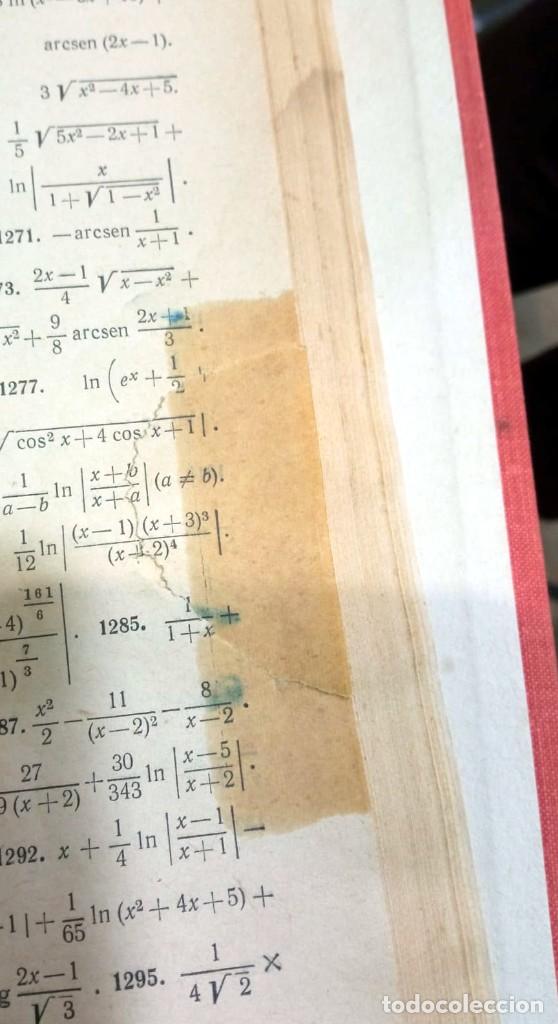 arcsen (2x—1).
3 √x²—4x+5.
1/5 √5x²—2x+1 +
ln | x / 1+√1—x² | .
1271. —arcsen 1/x+1 .
73. 2x—1/4 √x—x² +
x² + 9/8 arcsen 2x+1/3 .
1277. ln ( eˣ + 1/2 +
√cos² x+4 cos x+1 | .
1/a—b ln | x+b/x+a | (a ≠ b).
1/12 ln | (x—1) (x+3)³/(x+2)⁴ | .
4)^161/6
1)^7/3 | . 1285. 1/1+x +
87. x²/2 — 11/(x—2)² — 8/x—2 .
27/9 (x+2) + 30/343 ln | x—5/x+2 | .
1292. x + 1/4 ln | x—1/x+1 | —
1| + 1/65 ln (x²+4x+5) +
g 2x—1/√3 . 1295. 1/4 √2 ×
todocoleccion